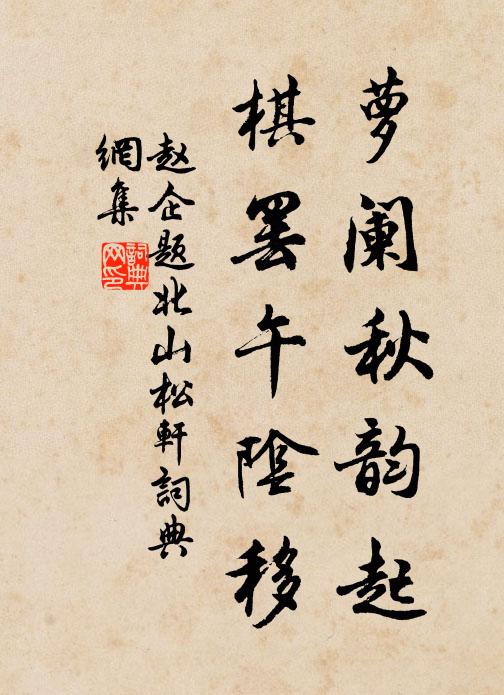 夢阑秋韵起
棋罢午陰移
赵企题北山松軒詞典
網集
詞典
网印